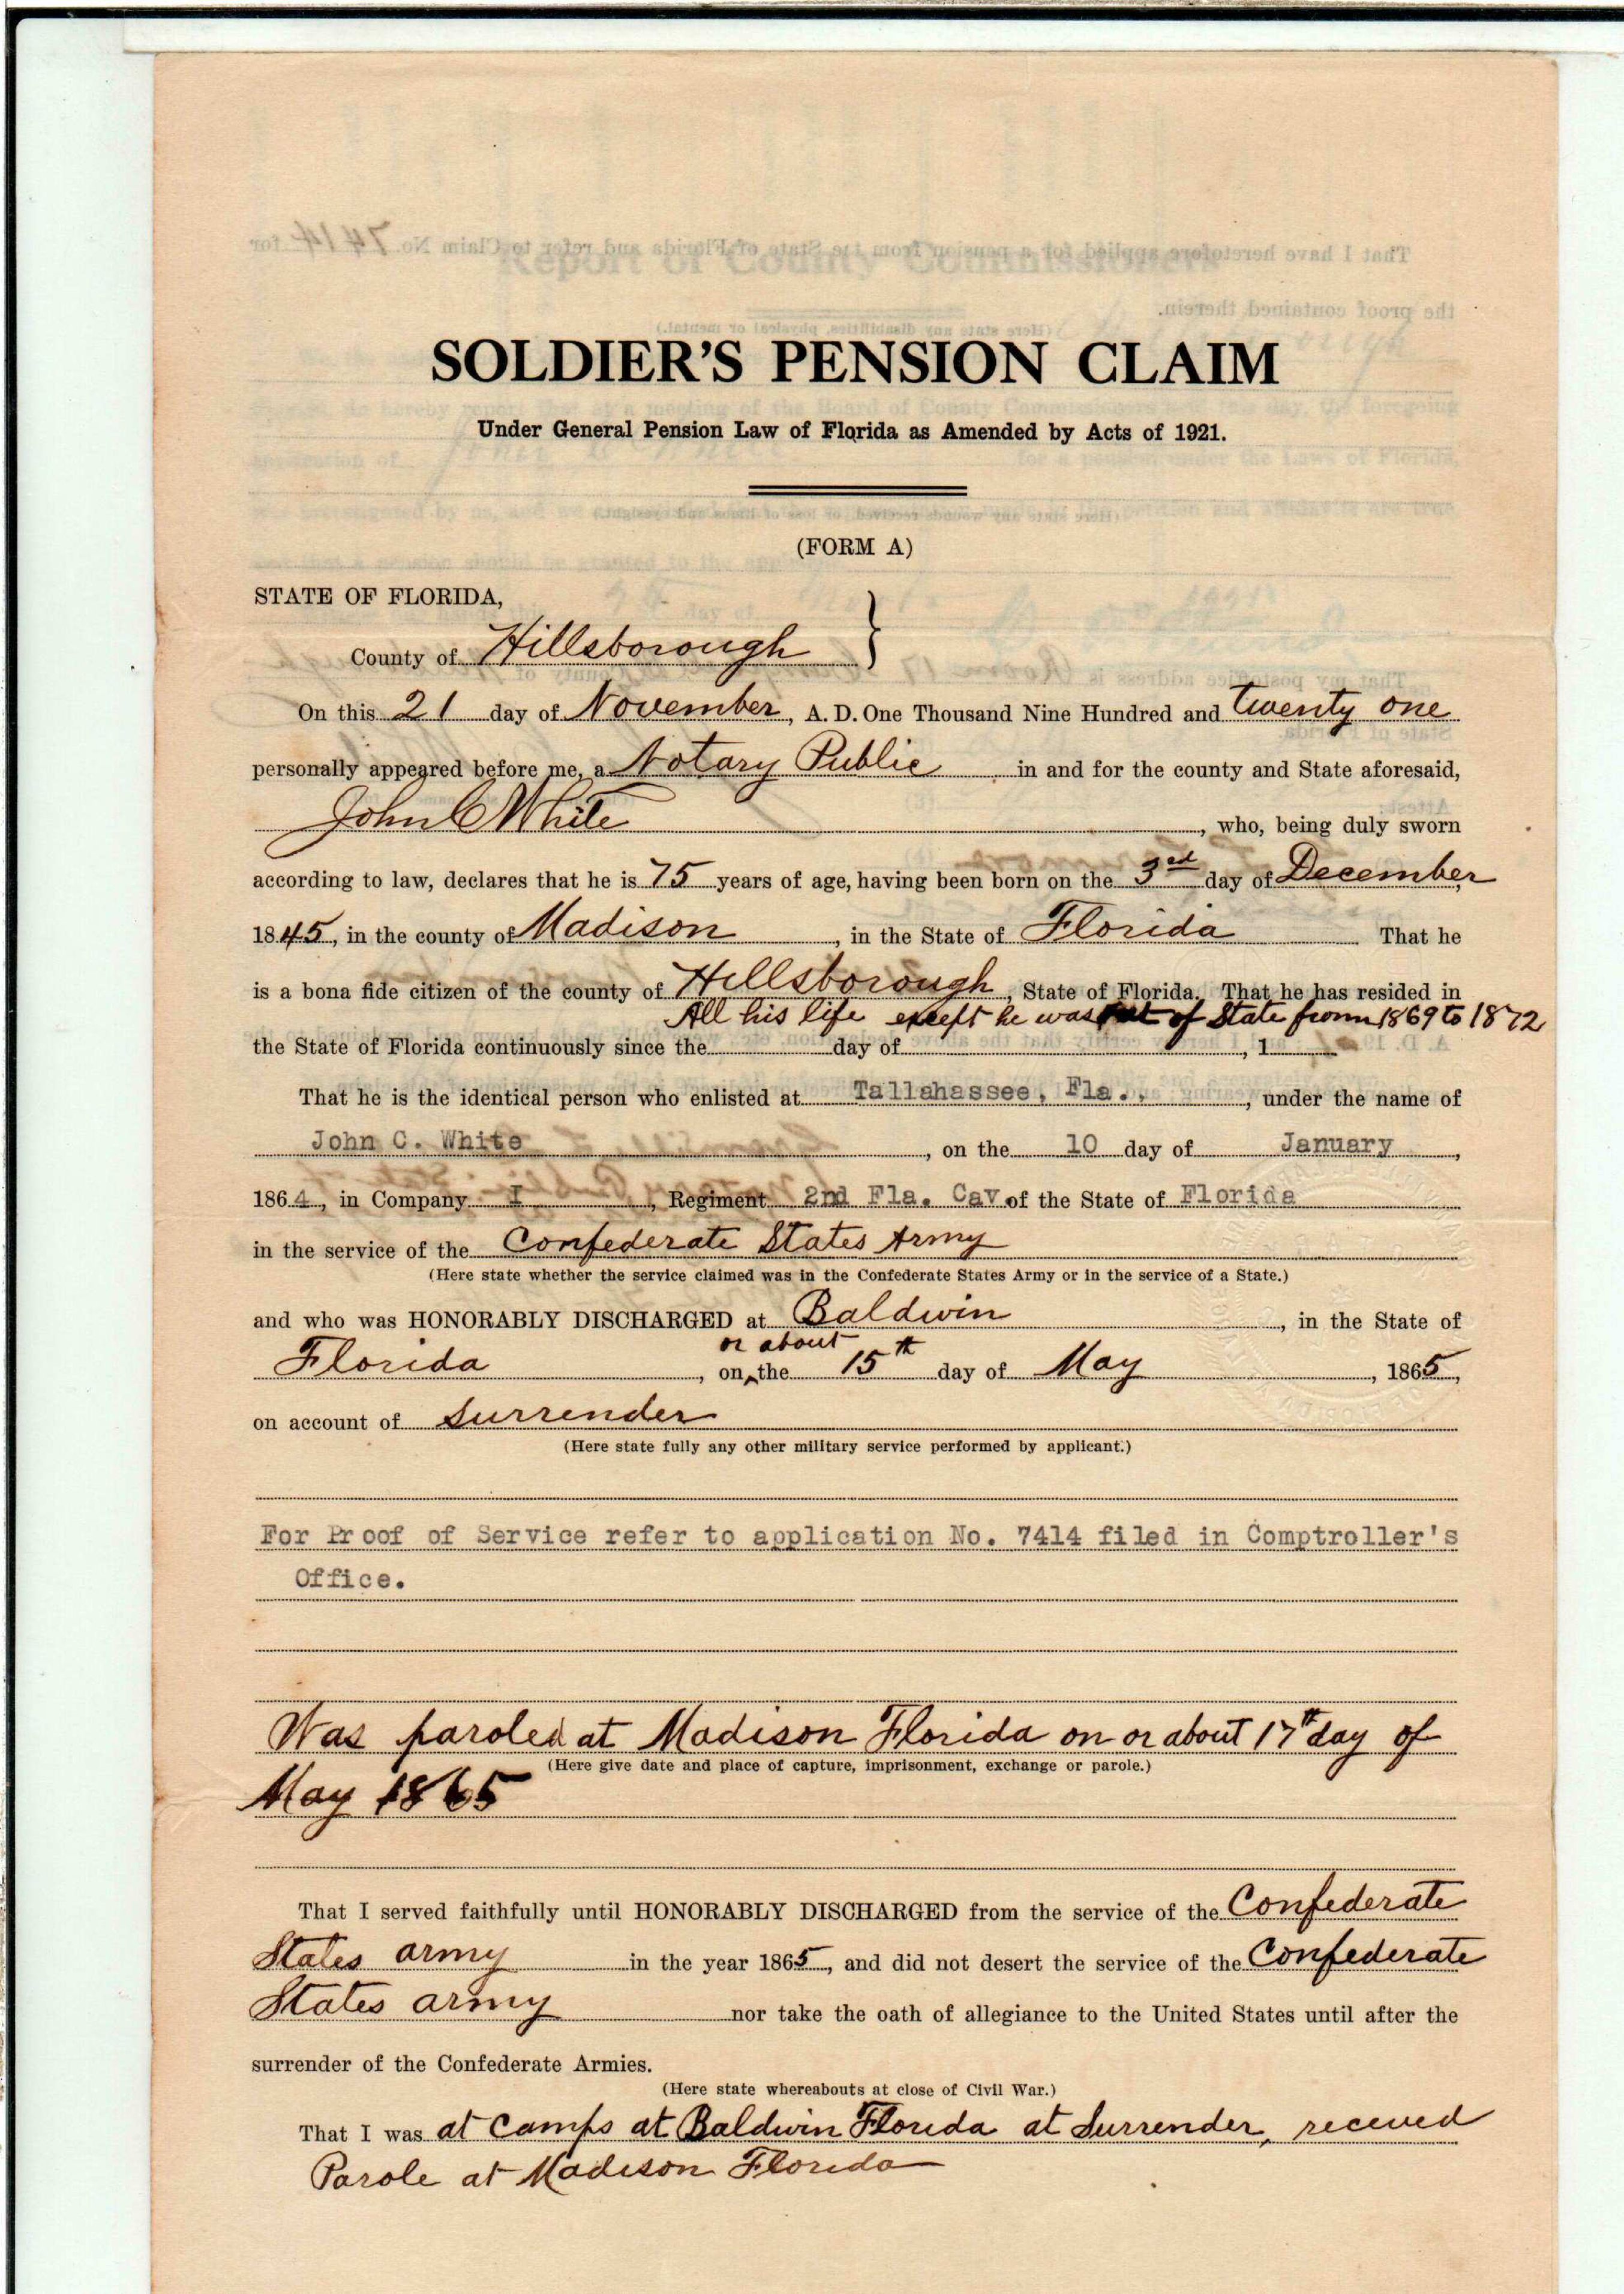 SOLDIER'S PENSION CLAIM
Under General Pension Law of Florida as Amended by Acts of 1921.
(FORM A)
STATE OF FLORIDA,
County of Hillsborough }
On this 21 day of November, A. D. One Thousand Nine Hundred and twenty one
personally appeared before me, a Notary Public in and for the county and State aforesaid,
John C White, who, being duly sworn
according to law, declares that he is 75 years of age, having been born on the 3rd day of December
1845, in the county of Madison, in the State of Florida That he
is a bona fide citizen of the county of Hillsborough, State of Florida. That he has resided in
All his life except he was out of State from 1869 to 1872
the State of Florida continuously since the day of , 1
That he is the identical person who enlisted at Tallahassee, Fla., , under the name of
John C. White, on the 10 day of January,
1864, in Company I, Regiment 2nd Fla. Cav. of the State of Florida
in the service of the Confederate States Army
(Here state whether the service claimed was in the Confederate States Army or in the service of a State.)
and who was HONORABLY DISCHARGED at Baldwin, in the State of
or about
Florida, on the 15th day of May, 1865,
on account of Surrender
(Here state fully any other military service performed by applicant.)
For Proof of Service refer to application No. 7414 filed in Comptroller's
Office.
Was paroled at Madison Florida on or about 17th day of
(Here give date and place of capture, imprisonment, exchange or parole.)
May 1865
That I served faithfully until HONORABLY DISCHARGED from the service of the Confederate
States army in the year 1865, and did not desert the service of the Confederate
States army nor take the oath of allegiance to the United States until after the
surrender of the Confederate Armies.
(Here state whereabouts at close of Civil War.)
That I was at Camps at Baldwin Florida at Surrender, received
Parole at Madison Florida